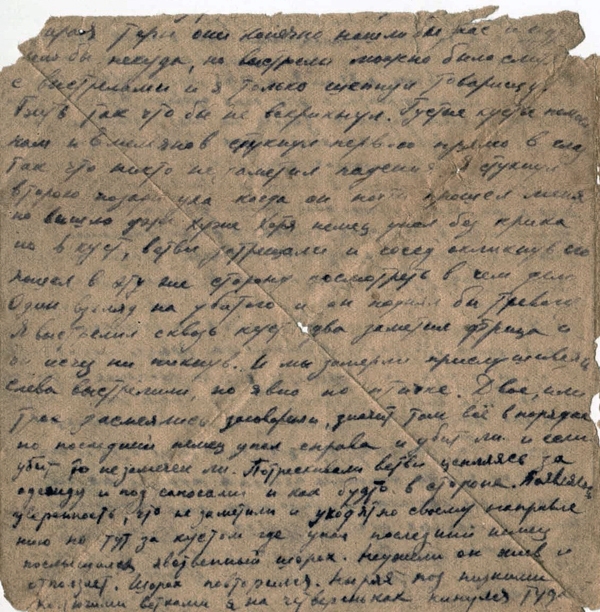 они конечно нашли бы нас и
бы некуда, но выстрели можно было
с выстрелами и я только шепнул товарищу
бить так что бы не вскрикнул. Густые кусты
нам и Емельянов стукнул первого прямо в
так что никто не заметил падения. Я стукнул
второго позади уха когда он почти прошел меня
но вышло хуже хотя немец упал без крика
но в куст, ветви затрещали и сосед окликнув его
пошел в эту же сторону посмотреть в чем дело
Один взгляд на убитого и он поднял бы тревогу
Я выстрелил сквозь куст едва заметил фрица и
он исчез ни пикнув. И мы замерли прислушиваясь
слева выстрелили, но явно по птичке. Двое, или
трое засмеялись заговорили, значит там всё в порядке
но последний немец упал справа и убит ли и если
убит то незамечен ли. Потрескивали ветви цепляясь за
одежду и под сапогами и как будто в стороне. Появилась
уверенность, что не заметили и уходят по своему направле
нию но тут за кустом где упал последний немец
послышался явственный шорох. Неужели он жив и
отползает. Шорох повторился. Ныряя под низкими
ветками я на четвереньках кинулся туда